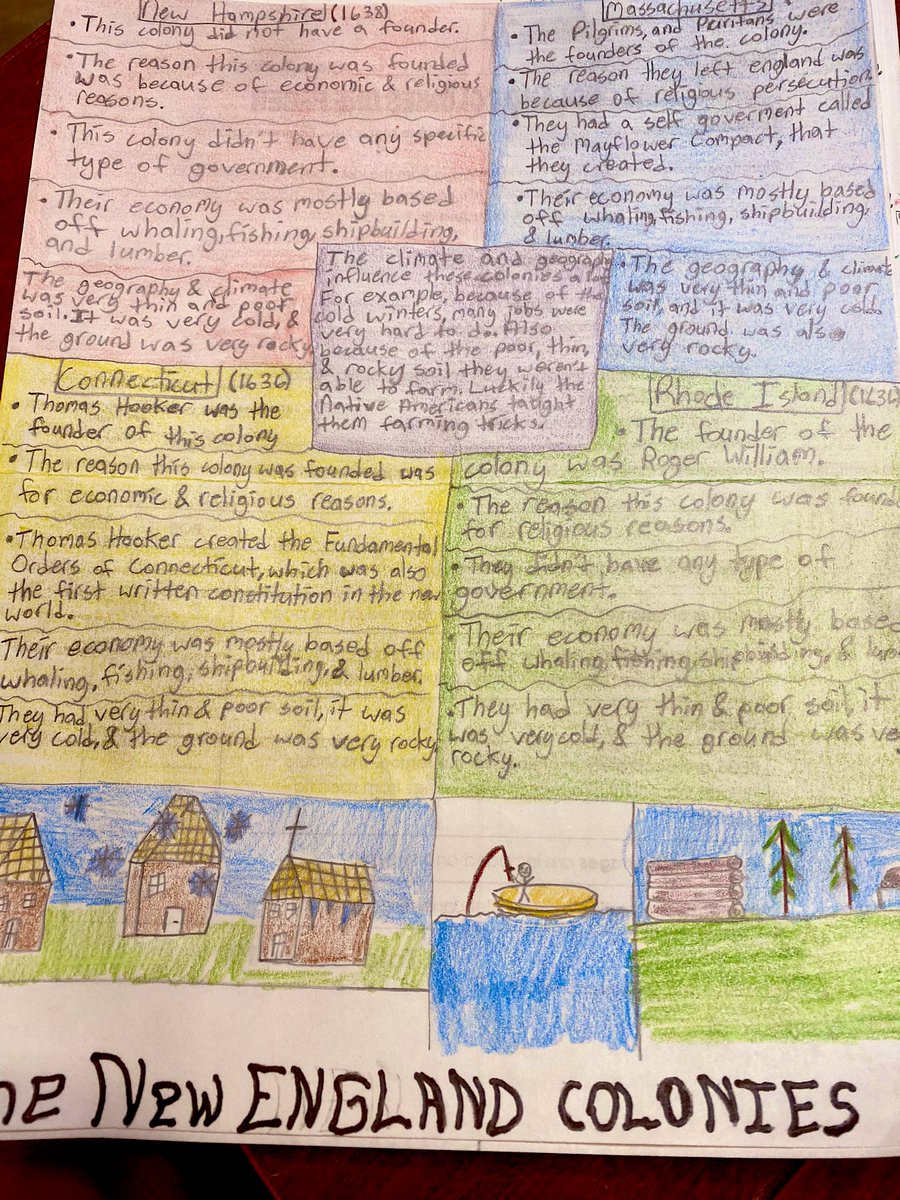 New Hampshire (1638)
• This colony did not have a founder.
• The reason this colony was founded
was because of economic & religious
reasons.
• This colony didn't have any specific
type of government.
• Their economy was mostly based
off whaling, fishing, shipbuilding,
and lumber.
The geography & climate
was very thin and poor
soil. It was very cold, &
the ground was very rocky.
Massachusetts
• The Pilgrims, and Puritans were
the founders of the colony.
• The reason they left england was
because of religious persecution.
• They had a self goverment called
the Mayflower Compact, that
they created.
• Their economy was mostly based
off whaling, fishing, shipbuilding,
& lumber.
• The geography & climate
was very thin and poor
soil, and it was very cold.
The ground was also
very rocky.
The climate and geography
influence these colonies a
For example, because of the
cold winters, many jobs were
very hard to do. Also
because of the poor, thin,
& rocky soil they weren't
able to farm. Luckily the
Native Americans taught
them farming tricks.
Connecticut (1636)
• Thomas Hooker was the
founder of this colony
• The reason this colony was founded was
for economic & religious reasons.
• Thomas Hooker created the Fundamental
Orders of Connecticut, which was also
the first written constitution in the new
world.
Their economy was mostly based off
whaling, fishing, shipbuilding, & lumber.
They had very thin & poor soil, it was
very cold, & the ground was very rocky
Rhode Island (1636
• The founder of the
colony was Roger William.
• The reason this colony was found
for religious reasons.
• They didn't have any type of
government.
• Their economy was mostly based
off whaling, fishing, shipbuilding, & lum
• They had very thin & poor soil, it
was very cold, & the ground was ve
rocky.
he New ENGLAND COLONIES